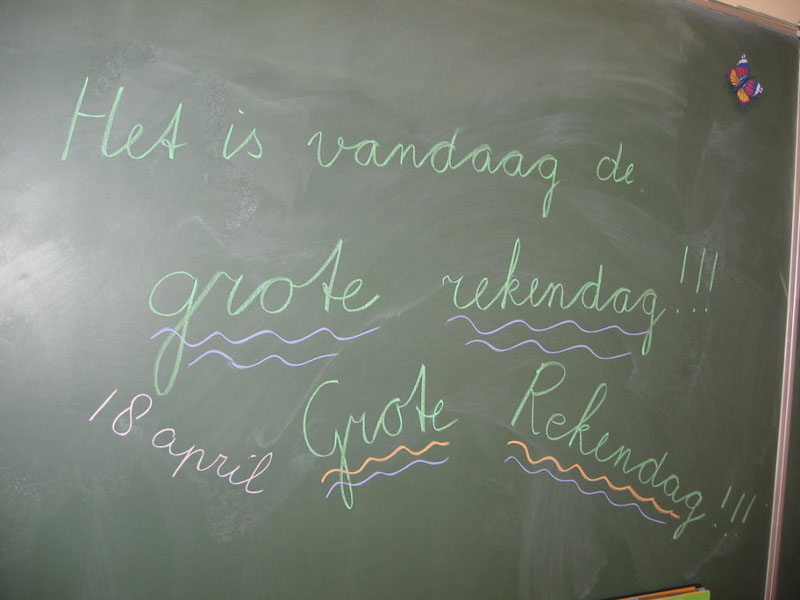 Het is vandaag de
grote rekendag!!!
18 april
Grote Rekendag!!!